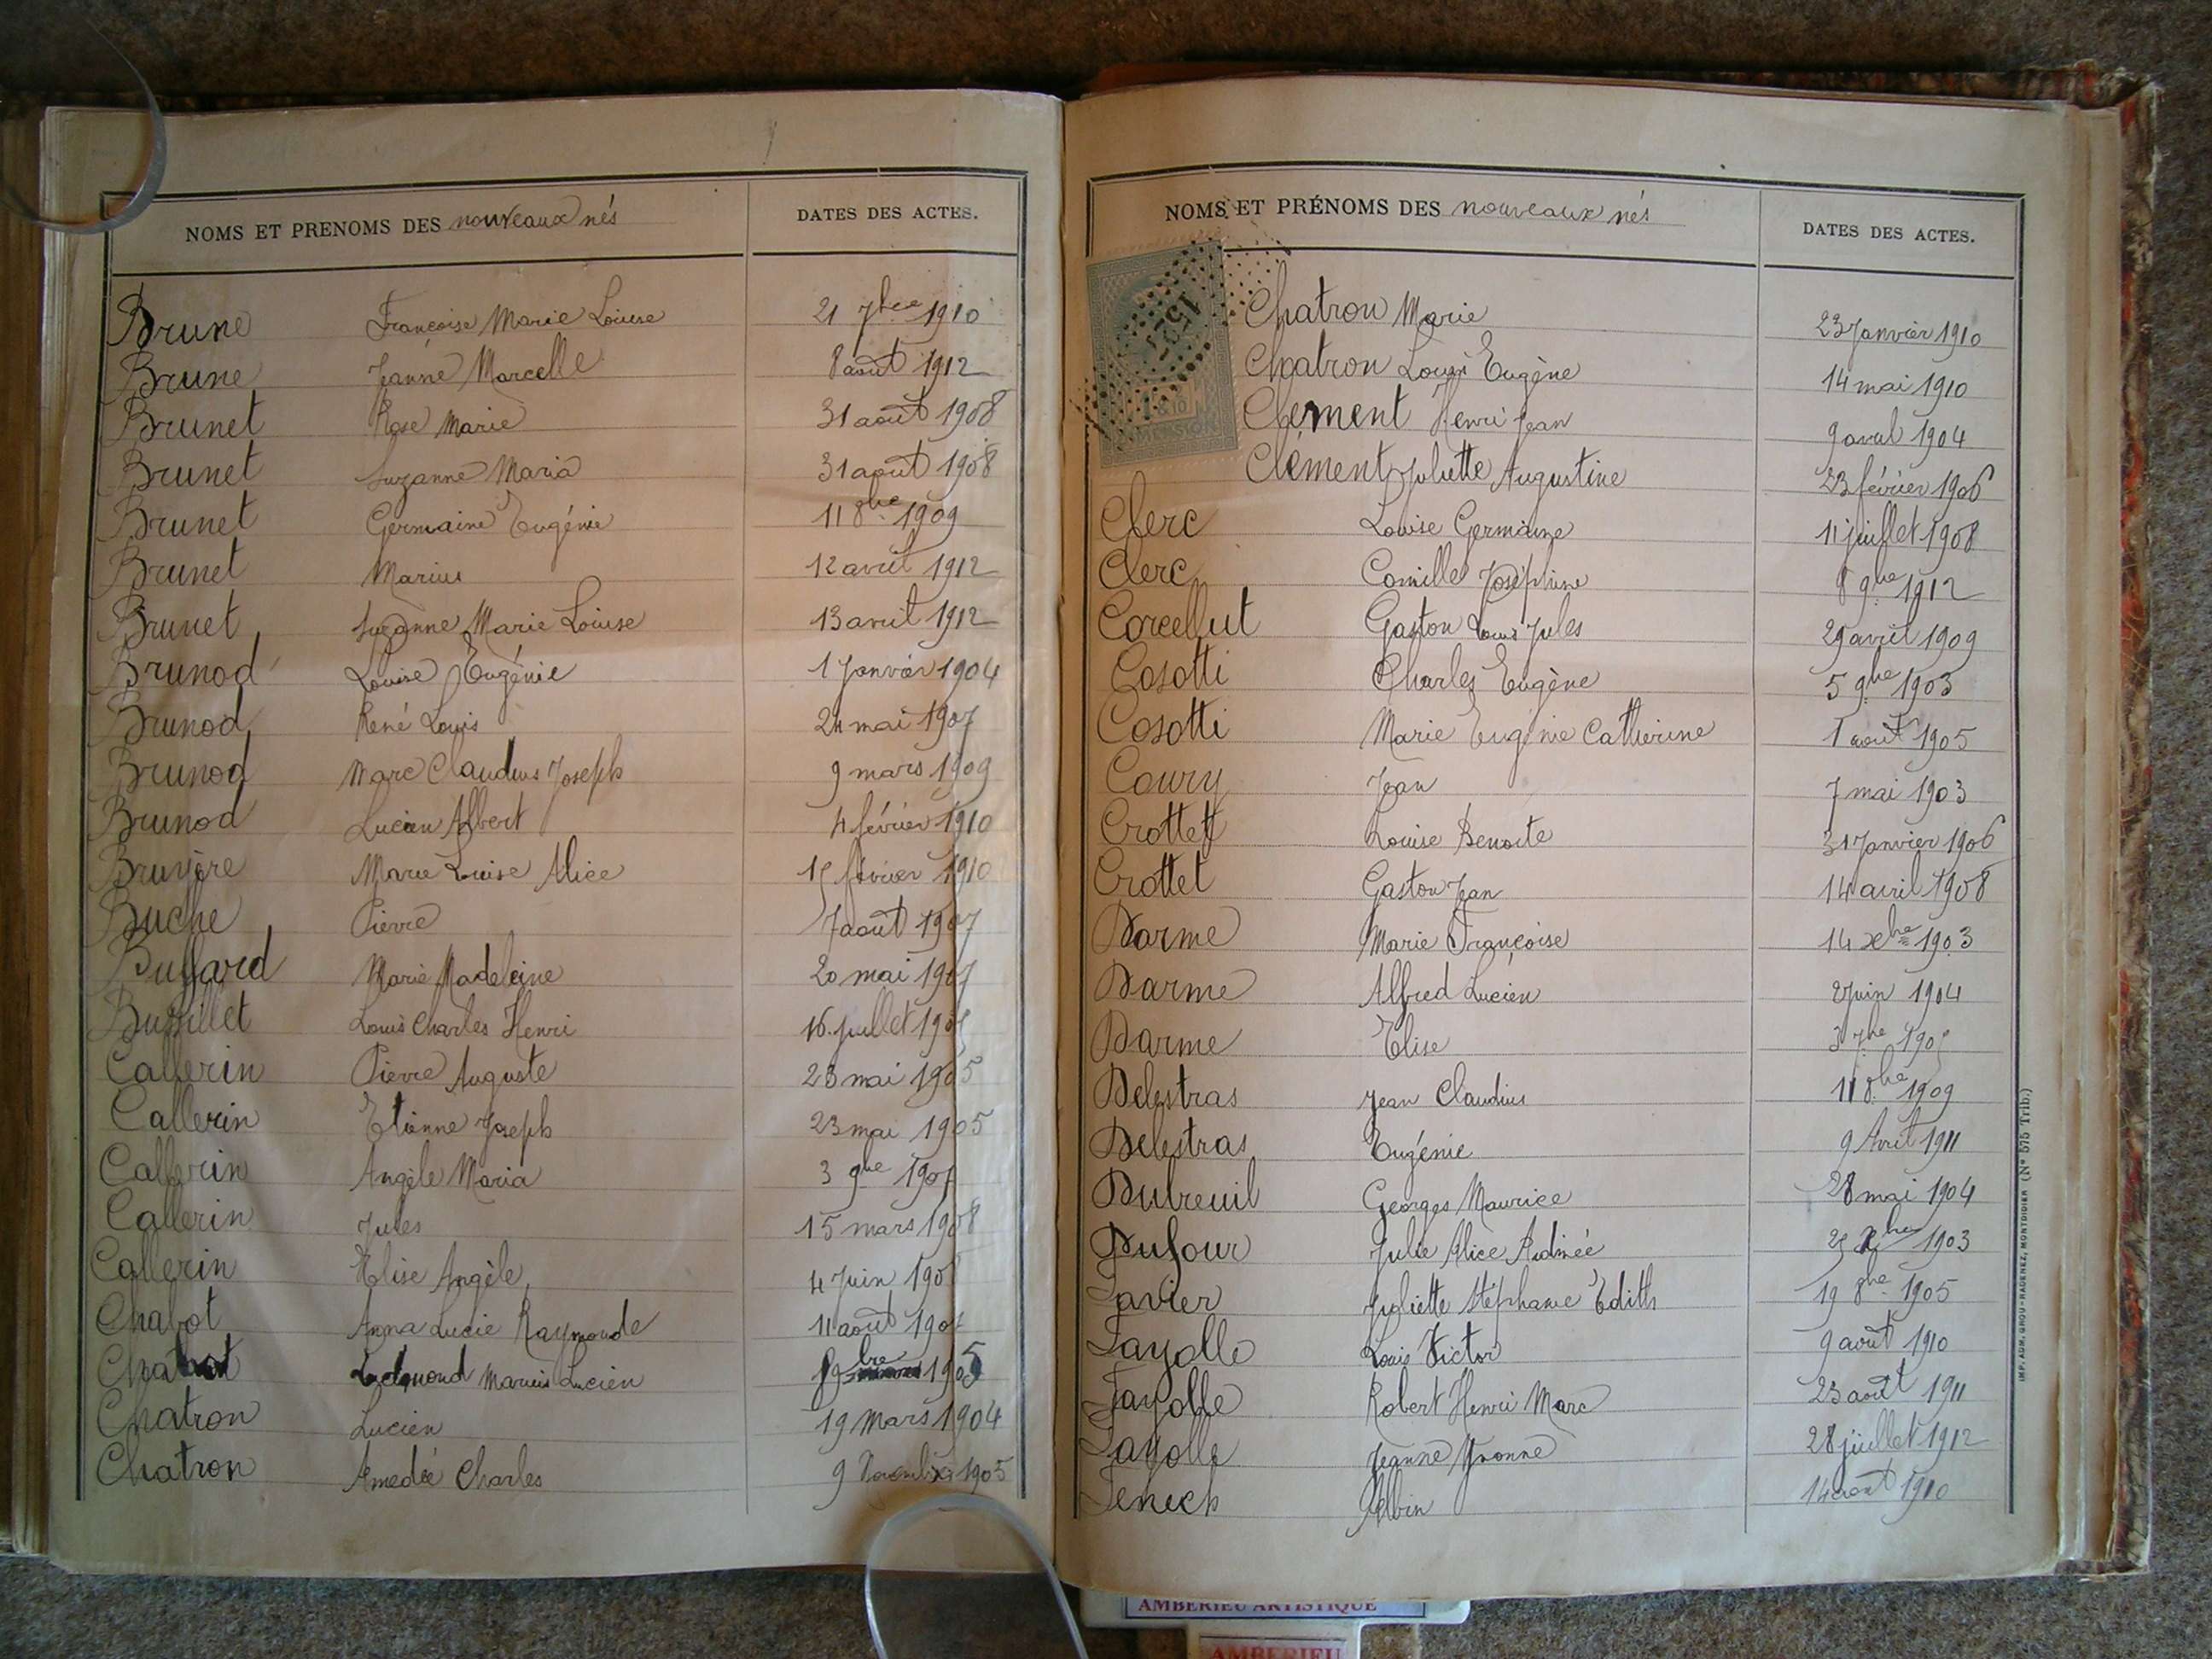 NOMS ET PRENOMS DES nouveaux nés DATES DES ACTES.
Brune Françoise Marie Louise 21 7bre 1910
Brune Jeanne Marcelle 8 août 1912
Brunet Rose Marie 31 août 1908
Brunet Suzanne Maria 31 août 1908
Brunet Germaine Eugénie 11 8bre 1909
Brunet Marius 12 avril 1912
Brunet Suzanne Marie Louise 13 avril 1912
Brunod Louise Eugénie 1 Janvier 1904
Brunod René Louis 24 mai 1907
Brunod Marc Claudius Joseph 9 mars 1909
Brunod Lucien Albert 4 février 1910
Bruyère Marie Louise Alice 15 février 1910
Buche Pierre 7 août 1907
Buffard Marie Madeleine 20 mai 1907
Bussillet Louis Charles Henri 16 juillet
Callerin Pierre Auguste 23 mai 1905
Callerin Etienne Joseph 23 mai 1905
Callerin Angèle Maria 3 9bre
Callerin Jules 15 mars 1908
Callerin Elise Angèle 4 Juin
Chabot Anna Lucie Raymonde 11 août
Marius Lucien 1905
Chatron Lucien 19 Mars 1904
Chatron Amedée Charles 9 Novembre 1905
NOMS ET PRÉNOMS DES nouveaux nés DATES DES ACTES.
Chatron Marie 23 Janvier 1910
Chatron Louis Eugène 14 mai 1910
Clément Henri Jean 9 avril 1904
Clément Juliette Augustine 23 février 1906
Clerc Louise Germaine 11 juillet 1908
Clerc Camille Joséphine 8 9bre 1912
Corcellut Gaston Louis Jules 29 avril 1909
Cosotti Charles Eugène 5 9bre 1903
Cosotti Marie Eugénie Catherine 1 août 1905
Coury Jean 7 mai 1903
Crottet Louise Benoite 31 Janvier 1906
Crottet Gaston Jean 14 avril 1908
Darme Marie Françoise 14 xbre 1903
Darme Alfred Lucien 2 Juin 1904
Darme Elise 3 7bre
Delestras Jean Claudius 11 8bre 1909
Delestras Eugénie 9 Avril 1911
Dubreuil Georges Maurice 28 mai 1904
Dufour Julie Alice 25 Xbre 1903
Favier Juliette Stéphanie Edith 19 8bre 1905
Fayolle Louis Victor 9 août 1910
Fayolle Robert Henri Marc 23 août 1911
Fayolle Jeanne Yvonne 28 juillet 1912
Fenech Albin 14 août 1910
IMP. ADM. GROU-RADENEZ, MONTDIDIER (N° 575 Trib.)
AMBERIEU ARTISTIQUE
AMBERIEU